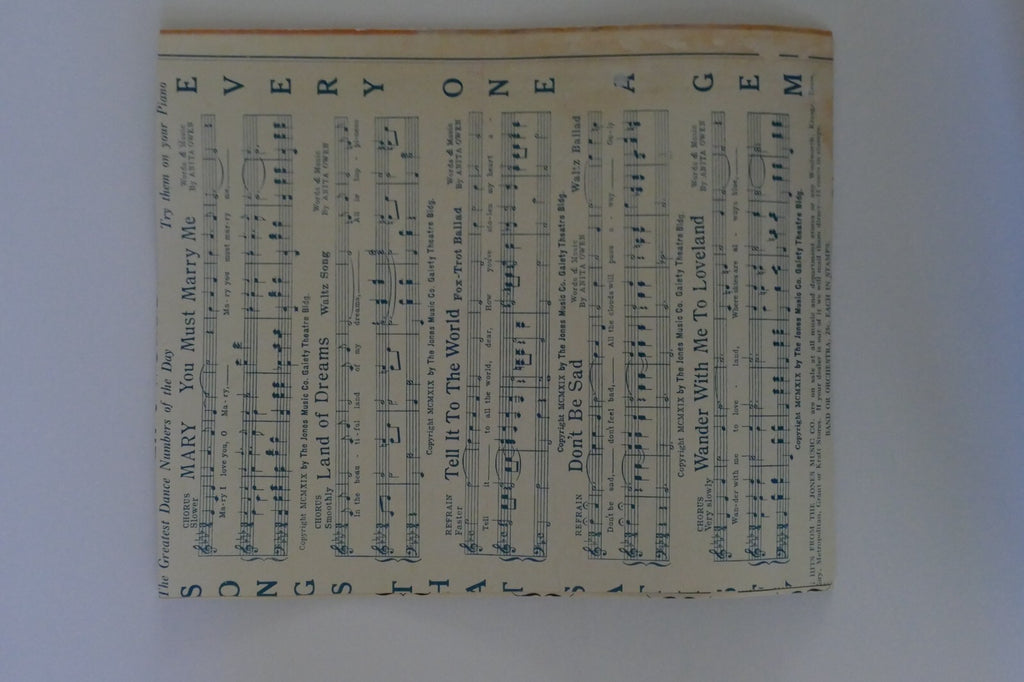 The Greatest Dance Numbers of the Day Try them on your Piano
SONGS THAT SA
EVERY ONE A GEM
MARY You Must Marry Me
Words & Music
By ANITA OWEN
CHORUS
Slower
Ma-ry I love you, O Ma-ry, Ma-ry you must mar-ry me,
Copyright MCMXIX by The Jones Music Co. Gaiety Theatre Bldg.
Land of Dreams Waltz Song
Words & Music
By ANITA OWEN
CHORUS
Smoothly
In the beau-ti-ful land of my dreams, All is hap-piness
Copyright MCMXIX by The Jones Music Co. Gaiety Theatre Bldg.
Tell It To The World Fox-Trot Ballad
Words & Music
By ANITA OWEN
REFRAIN
Faster
Tell it to all the world, dear, How you've sto-len my heart a-
Copyright MCMXIX by The Jones Music Co. Gaiety Theatre Bldg.
Don't Be Sad Waltz Ballad
Words & Music
By ANITA OWEN
REFRAIN
Don't be sad, don't feel bad, All the clouds will pass a-way
Copyright MCMXIX by The Jones Music Co. Gaiety Theatre Bldg.
Wander With Me To Loveland
Words & Music
By ANITA OWEN
CHORUS
Very slowly
Wan-der with me to love-land, Where skies are al-ways blue,
Copyright MCMXIX by The Jones Music Co. Gaiety Theatre Bldg.
HITS FROM THE JONES MUSIC CO. are on sale at all music and department stores or Woolworth, Kresge,
Metropolitan, Grant or Kraft Stores. If your dealer is out of it we will mail them direct
BAND OR ORCHESTRA, EACH IN STAMPS.